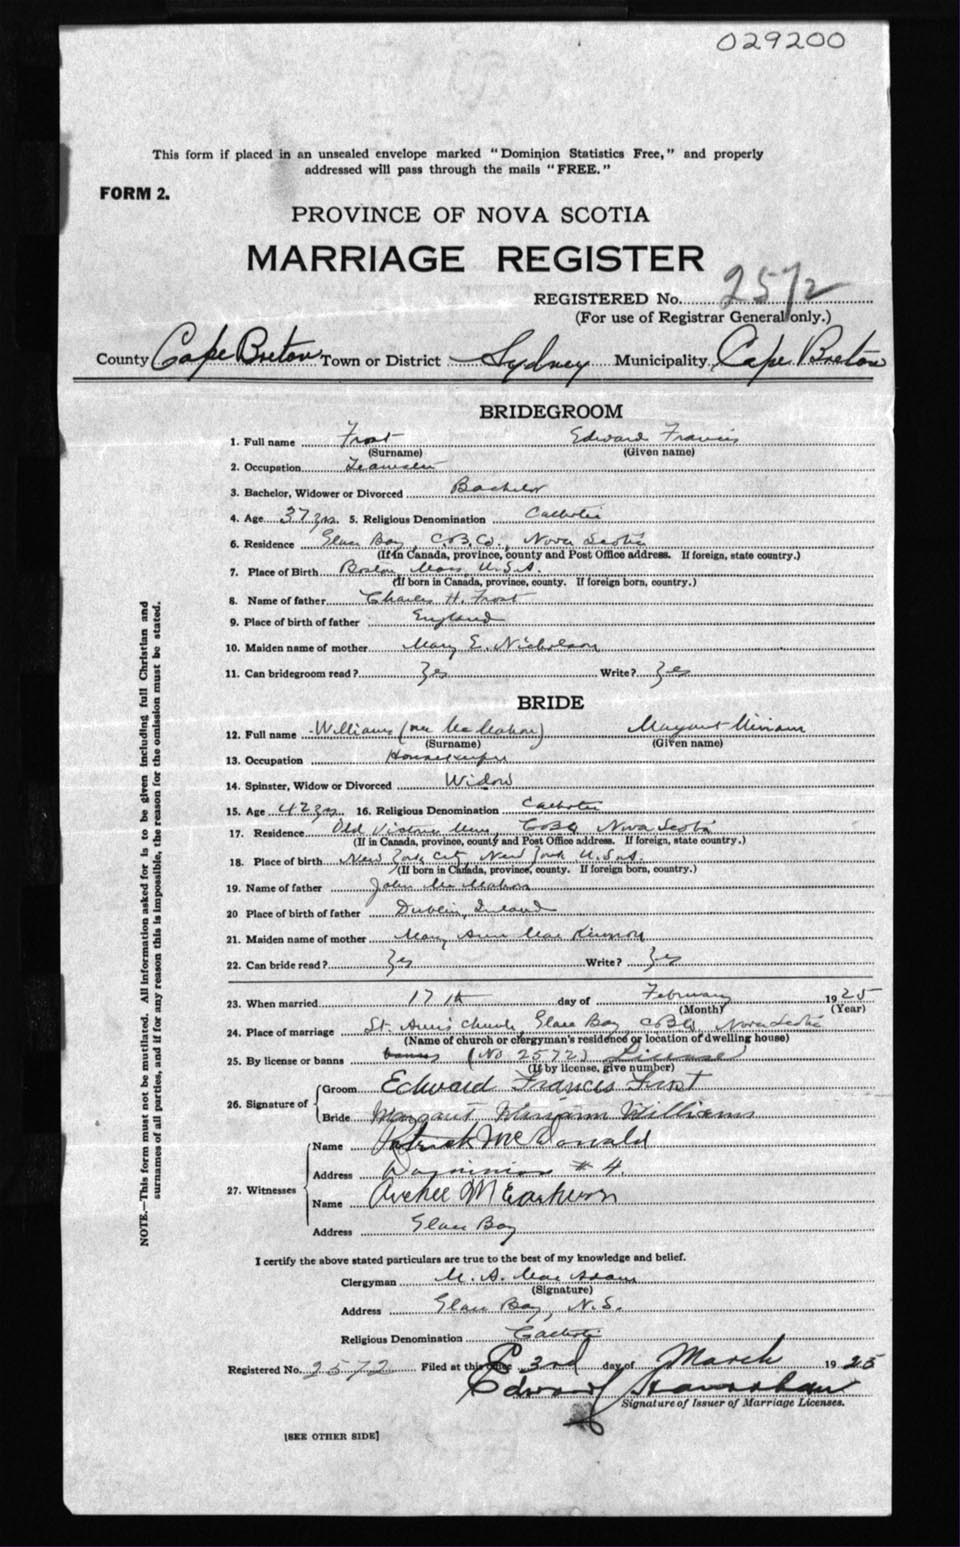 029200
This form if placed in an unsealed envelope marked "Dominion Statistics Free," and properly
addressed will pass through the mails "FREE."
FORM 2.
PROVINCE OF NOVA SCOTIA
MARRIAGE REGISTER
REGISTERED No. 2572
(For use of Registrar General only.)
County Cape Breton Town or District Sydney Municipality Cape Breton
BRIDEGROOM
1. Full name Frost Edward Francis
(Surname) (Given name)
2. Occupation Teamster
3. Bachelor, Widower or Divorced Bachelor
4. Age 37 yrs. 5. Religious Denomination Catholic
6. Residence Glace Bay, C.B.Co., Nova Scotia
(If in Canada, province, county and Post Office address. If foreign, state country.)
7. Place of Birth Boston, Mass, U.S.A.
(If born in Canada, province, county. If foreign born, country.)
8. Name of father Charles H. Frost
9. Place of birth of father England
10. Maiden name of mother Mary E. Nicholson
11. Can bridegroom read? Yes Write? Yes
BRIDE
12. Full name Williams (nee McMahon) Margaret Miriam
(Surname) (Given name)
13. Occupation Housekeeper
14. Spinster, Widow or Divorced Widow
15. Age 42 yrs 16. Religious Denomination Catholic
17. Residence Old Victoria C.B.Co. Nova Scotia
(If in Canada, province, county and Post Office address. If foreign, state country.)
18. Place of birth New York City, New York U.S.A.
(If born in Canada, province, county. If foreign born, country.)
19. Name of father John McMahon
20 Place of birth of father Dublin, Ireland
21. Maiden name of mother Mary Ann MacKinnon
22. Can bride read? Yes Write? Yes
23. When married 17th day of February 1925
(Month) (Year)
24. Place of marriage St. Ann's Church, Glace Bay, C.B.Co, Nova Scotia
(Name of church or clergyman's residence or location of dwelling house)
25. By license or banns banns (No 2572) License
(If by license, give number)
26. Signature of Groom Edward Francis Frost
Bride Margaret Williams
27. Witnesses
Name Patrick McDonald
Address Dominion #4
Name Archie
Address Glace Bay
I certify the above stated particulars are true to the best of my knowledge and belief.
Clergyman M. A. MacAdam
(Signature)
Address Glace Bay, N.S.
Religious Denomination Catholic
Registered No. 2572 Filed at this office 3rd day of March 1925
Edward
Signature of Issuer of Marriage Licenses.
[SEE OTHER SIDE]
NOTE.—This form must not be mutilated. All information asked for is to be given including full Christian and
surnames of all parties, and if for any reason this is impossible, the reason for the omission must be stated.